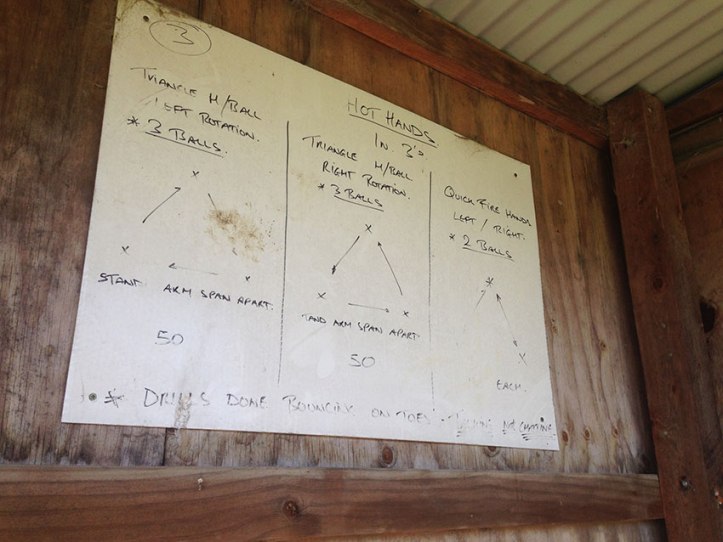 3
HOT HANDS
IN 3's
TRIANGLE M/BALL
LEFT ROTATION.
* 3 BALLS.
x
x x
STAND ARM SPAN APART.
50
TRIANGLE M/BALL
RIGHT ROTATION.
* 3 BALLS
x
x x
STAND ARM SPAN APART.
50
QUICK FIRE HANDS
LEFT / RIGHT.
* 2 BALLS
x
x
EACH.
* DRILLS DONE BOUNCING ON TOES
NOT